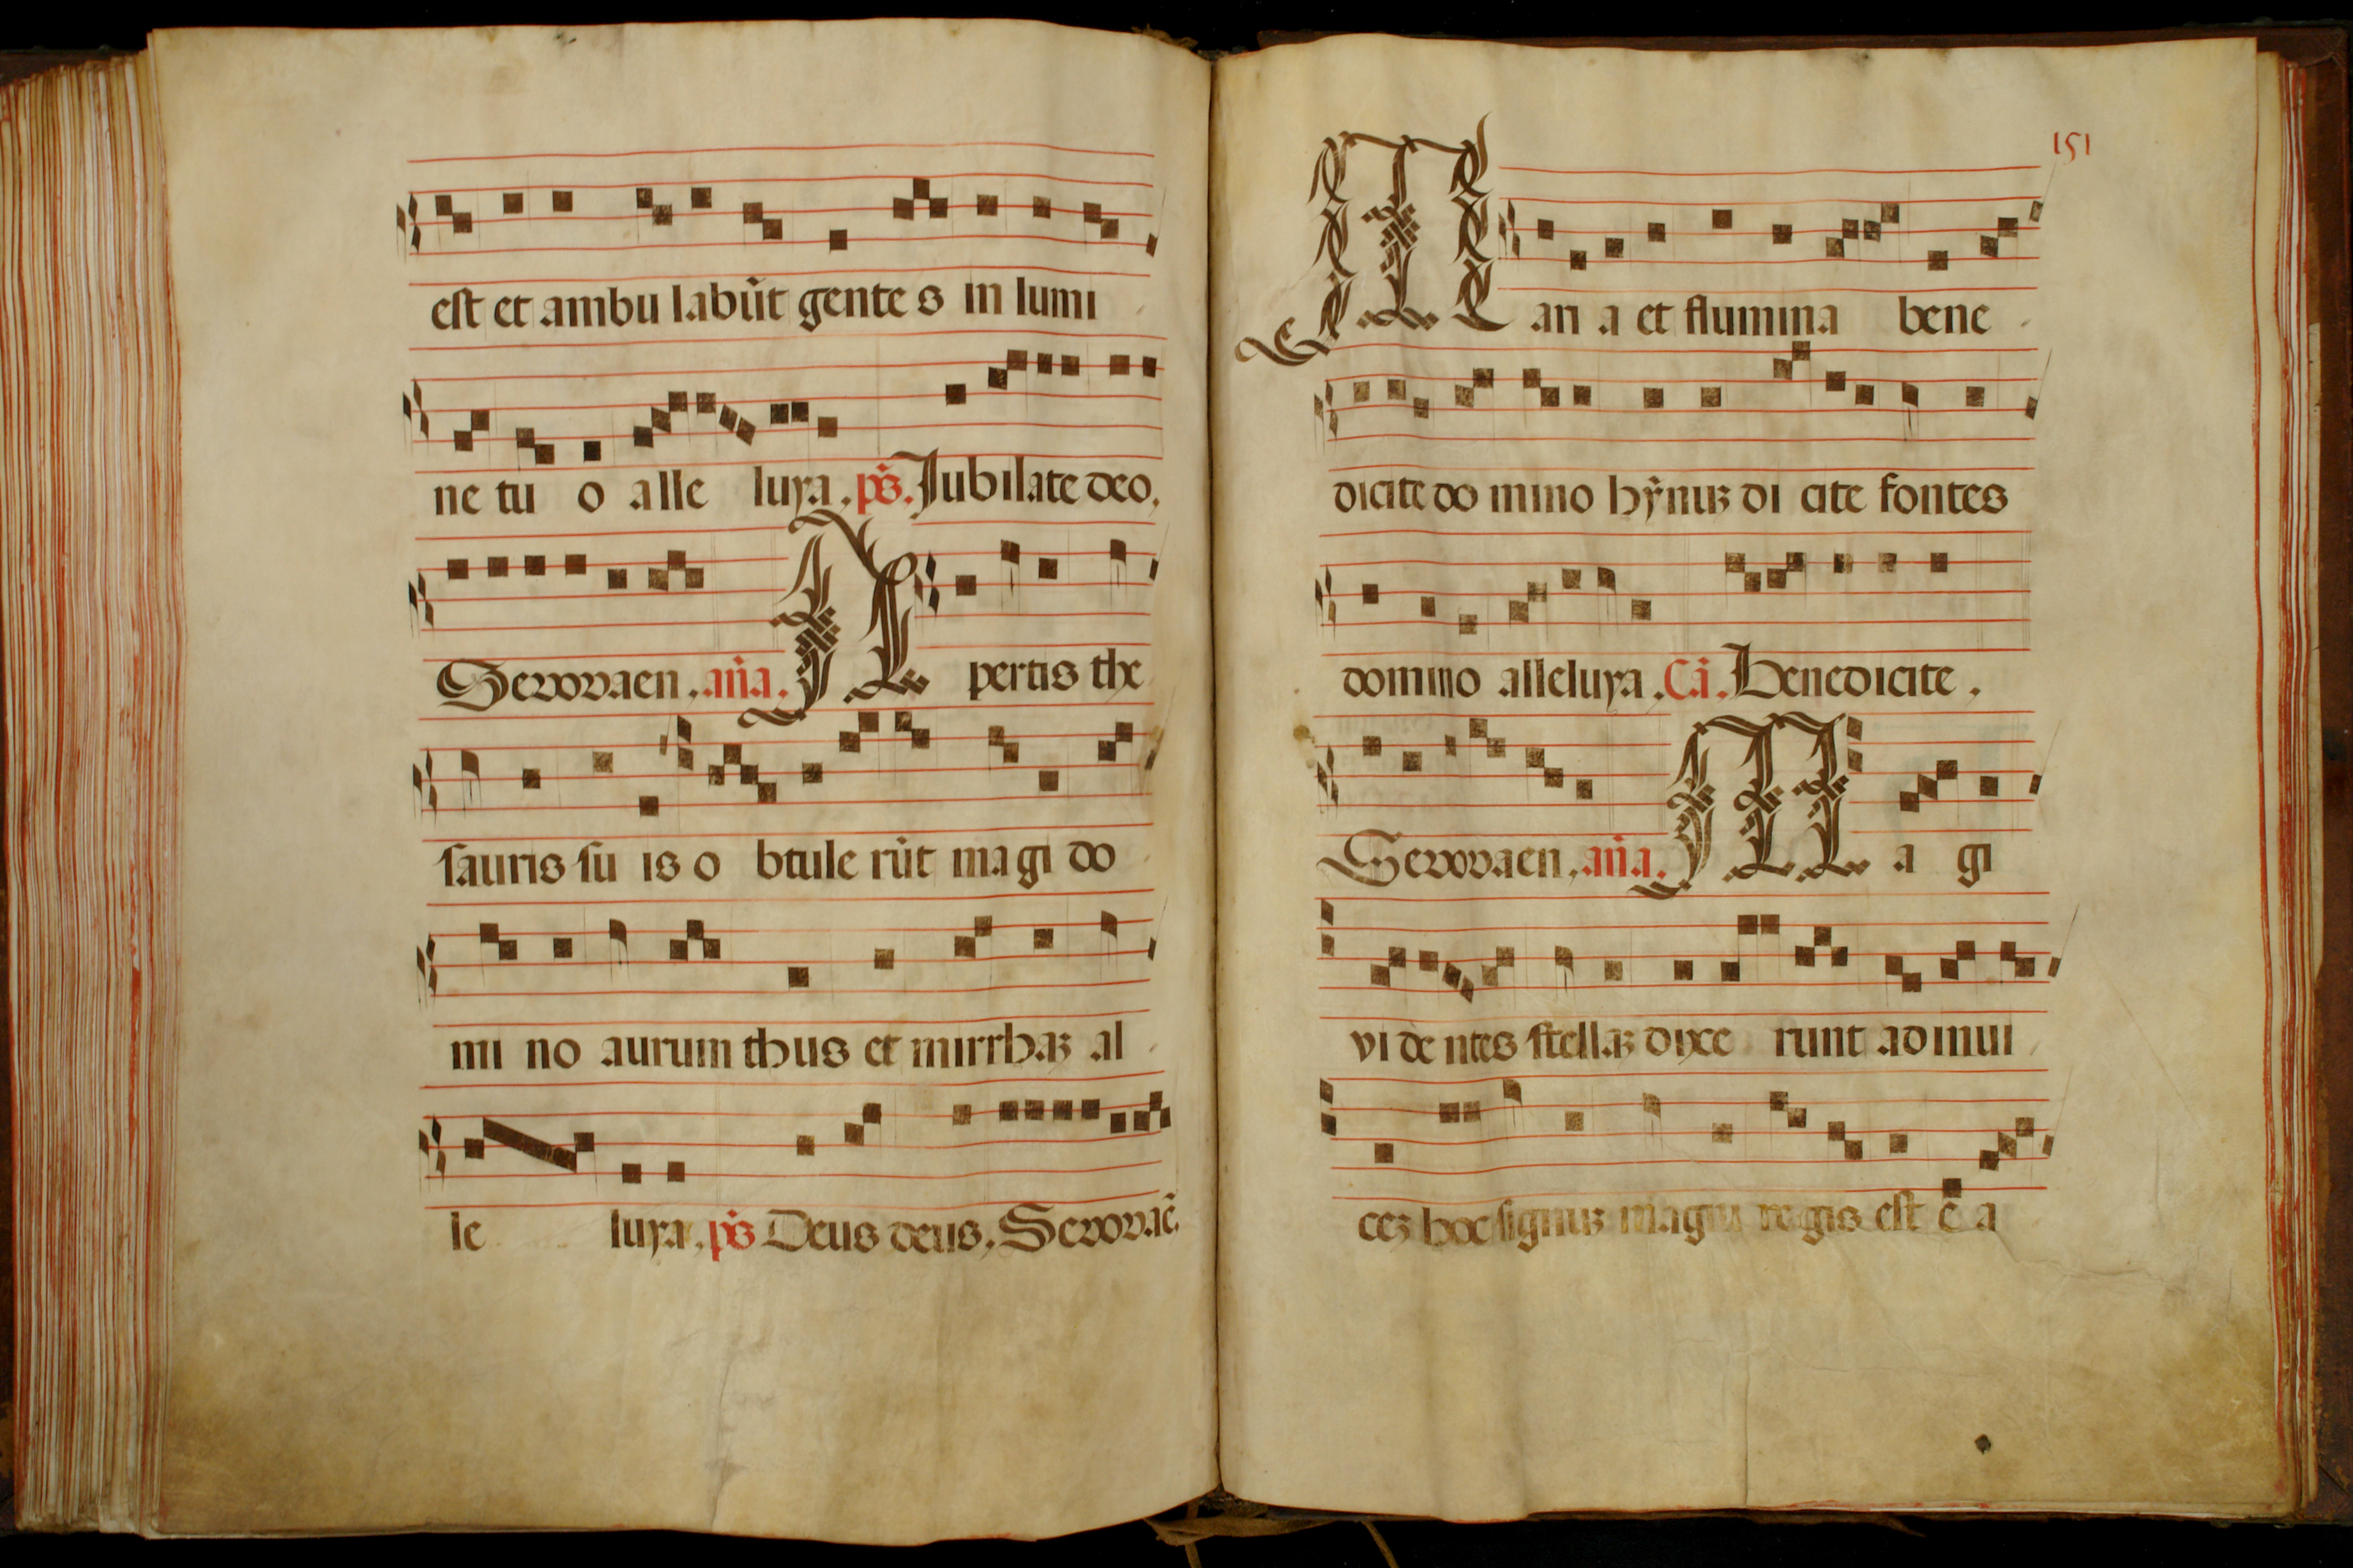 est et ambu labūt gente s in lumi
ne tu o alle luya . ps̄. Jubilate deo.
Sevovaen . an̄a. A pertis the
sauris su is o btule rūt magi do
mi no aurum thus et mirrhaʒ al
le luya. ps̄ Deus deus, Sevovaē.
151
M ari a et flumina bene
dicite do mino hȳnuʒ di cite fontes
domino alleluya . Cā. Benedicite .
Sevovaen . an̄a. M a gi
vi de ntes stellaʒ dixe runt ad inui
ceʒ hoc signuʒ magni regis est ē a